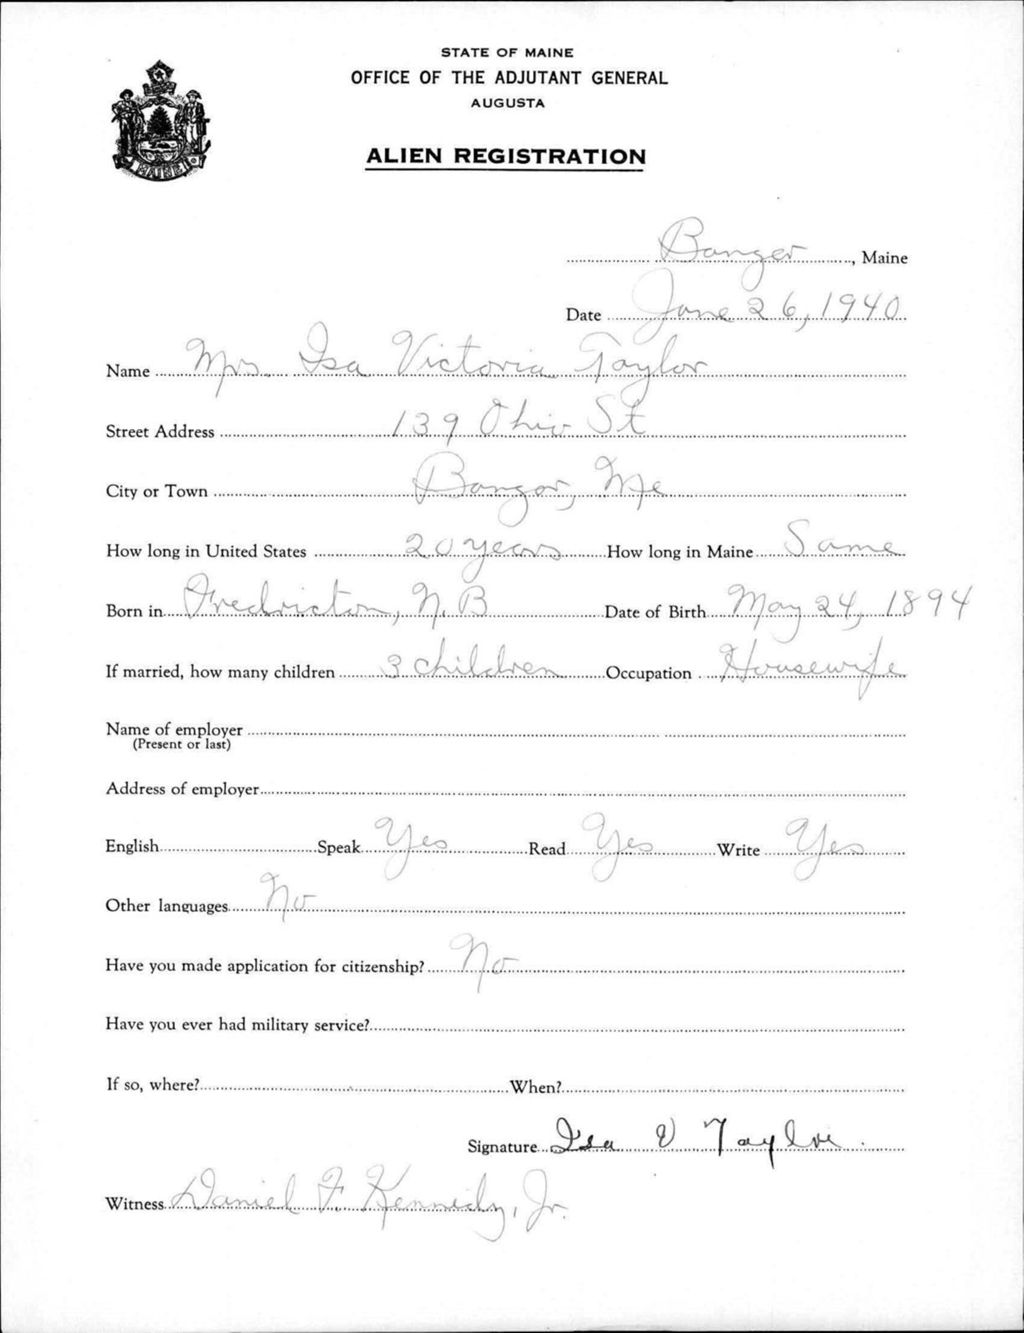 STATE OF MAINE
OFFICE OF THE ADJUTANT GENERAL
AUGUSTA
ALIEN REGISTRATION
MAINE
Bangor, Maine
Date June 26, 1940
Name Mrs. Isa Victoria Taylor
Street Address 139 Ohio St
City or Town Bangor, Me
How long in United States 20 years How long in Maine Same
Born in Fredricton, N.B Date of Birth May 24, 1894
If married, how many children 3 children Occupation Housewife
Name of employer
(Present or last)
Address of employer
English Speak Yes Read Yes Write Yes
Other languages No
Have you made application for citizenship? No
Have you ever had military service?
If so, where? When?
Signature Isa V Taylor
Witness Daniel F. Kennedy, Jr.